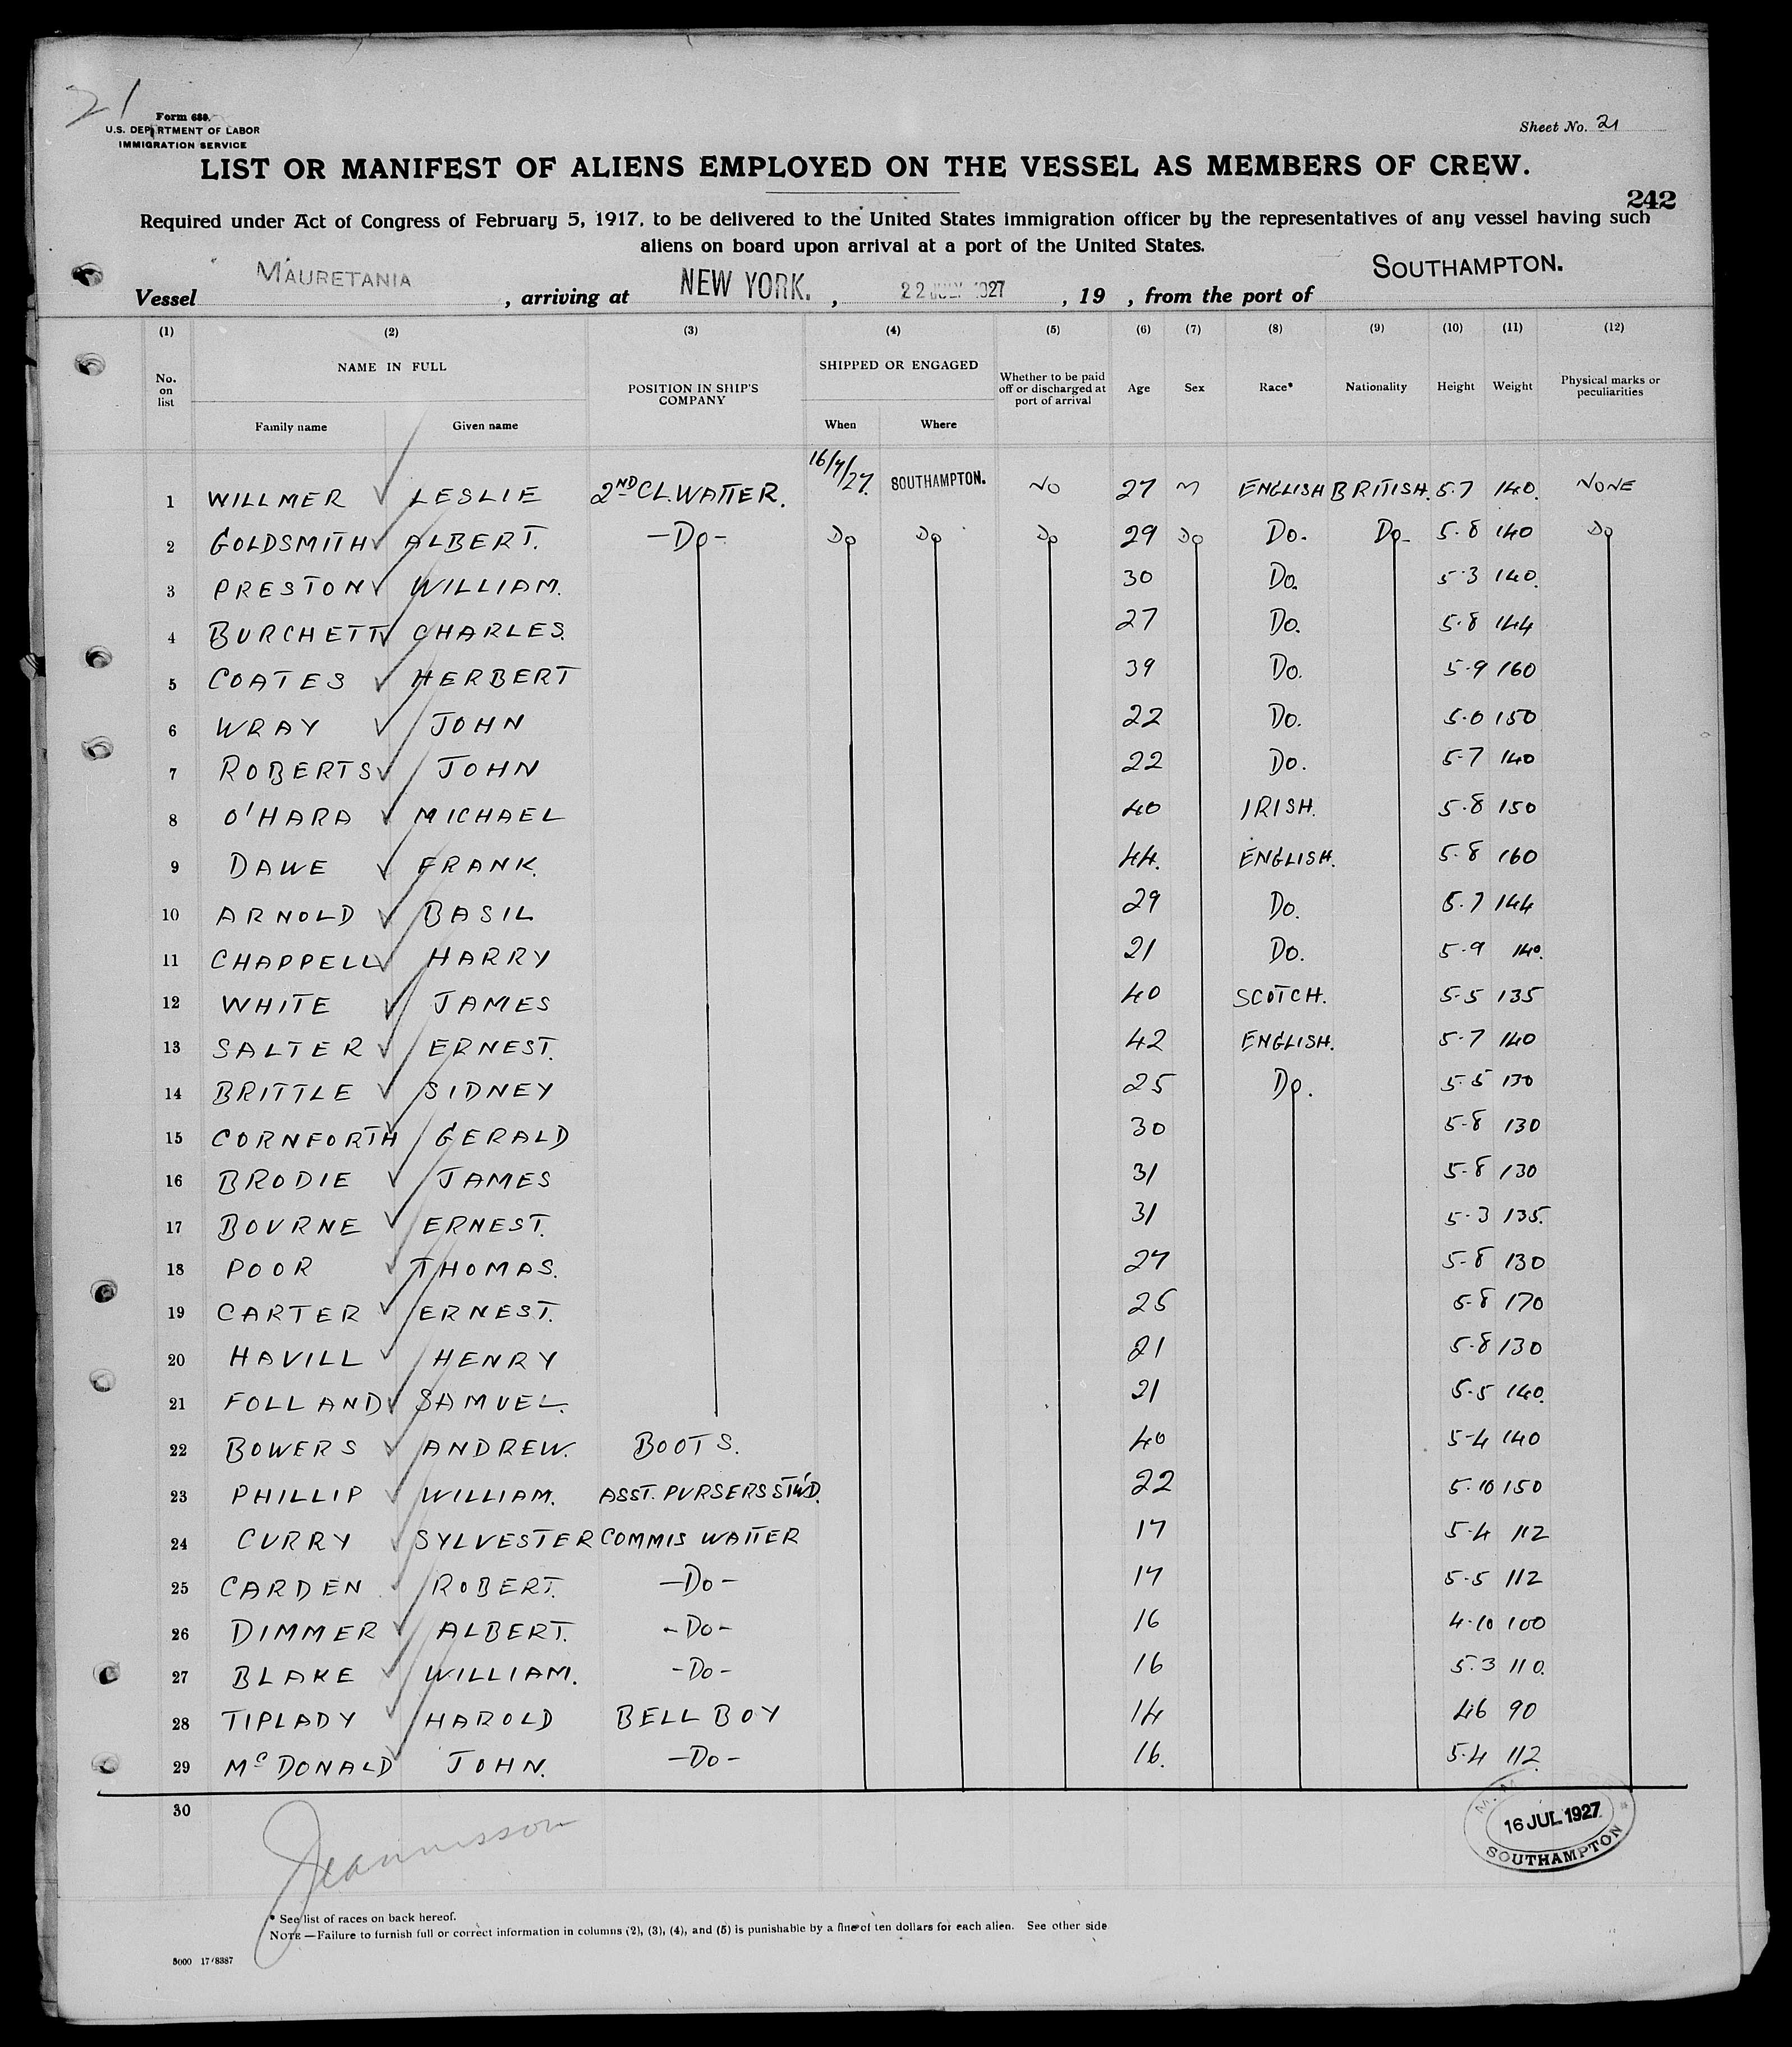 21
Form 680.
U.S. DEPARTMENT OF LABOR
IMMIGRATION SERVICE
Sheet No. 21
LIST OR MANIFEST OF ALIENS EMPLOYED ON THE VESSEL AS MEMBERS OF CREW.
242
Required under Act of Congress of February 5, 1917, to be delivered to the United States immigration officer by the representatives of any vessel having such
aliens on board upon arrival at a port of the United States.
Vessel MAURETANIA, arriving at NEW YORK., 22 JULY 1927, 19 , from the port of SOUTHAMPTON.
(1) (2) (3) (4) (5) (6) (7) (8) (9) (10) (11) (12)
No. on list NAME IN FULL POSITION IN SHIP'S COMPANY SHIPPED OR ENGAGED Whether to be paid off or discharged at port of arrival Age Sex Race* Nationality Height Weight Physical marks or peculiarities
Family name Given name When Where
1 WILLMER LESLIE 2ND CL. WAITER. 16/7/27. SOUTHAMPTON. NO 27 M ENGLISH BRITISH. 5.7 140. NONE
2 GOLDSMITH ALBERT. -DO- DO DO DO 29 DO DO. DO- 5.8 140 DO
3 PRESTON WILLIAM. 30 DO. 5.3 140.
4 BURCHETT CHARLES. 27 DO. 5.8 144
5 COATES HERBERT 39 DO. 5.9 160
6 WRAY JOHN 22 DO. 5.0 150
7 ROBERTS JOHN 22 DO. 5.7 140
8 O'HARA MICHAEL 40 IRISH. 5.8 150
9 DAWE FRANK. 44. ENGLISH. 5.8 160
10 ARNOLD BASIL 29 DO. 5.7 144
11 CHAPPELL HARRY 21 DO. 5.9 140.
12 WHITE JAMES 40 SCOTCH. 5.5 135
13 SALTER ERNEST. 42 ENGLISH. 5.7 140
14 BRITTLE SIDNEY 25 DO. 5.5 130
15 CORNFORTH GERALD 30 5.8 130
16 BRODIE JAMES 31 5.8 130
17 BOURNE ERNEST. 31 5.3 135.
18 POOR THOMAS. 27 5.8 130
19 CARTER ERNEST. 25 5.8 170
20 HAVILL HENRY 21 5.8 130
21 FOLLAND SAMUEL. 21 5.5 140.
22 BOWERS ANDREW. BOOTS. 40 5-4 140
23 PHILLIP WILLIAM. ASST. PURSERS STW'D. 22 5.10 150
24 CURRY SYLVESTER COMMIS WAITER 17 5.4 112
25 CARDEN ROBERT. -DO- 17 5.5 112
26 DIMMER ALBERT. -DO- 16 4.10 100
27 BLAKE WILLIAM. -DO- 16 5.3 110.
28 TIPLADY HAROLD BELL BOY 14 4.6 90
29 McDONALD JOHN. -DO- 16. 5.4 112
30
16 JUL 1927
SOUTHAMPTON
* See list of races on back hereof.
NOTE.—Failure to furnish full or correct information in columns (2), (3), (4), and (5) is punishable by a fine of ten dollars for each alien. See other side
5000 17/8387